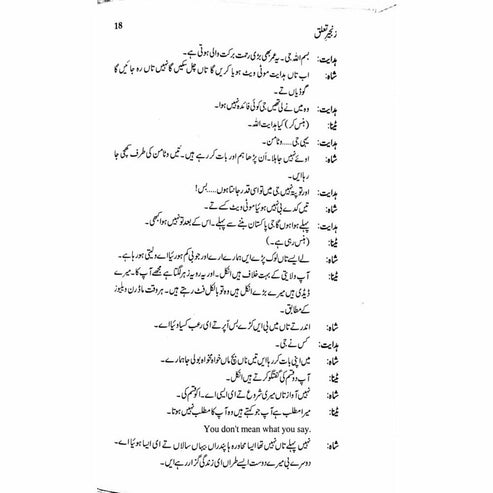 18 زنجیرِ تعلق
ہدایت: بسم اللہ جی۔ یہ عمر بھی بڑی رحمت برکت والی ہوتی ہے۔
شاہ: اب تاں ہدایت مونی ویٹ ہویا کریں گا تاں چل سکیں گا نہیں تاں رہ جائیں گا
گوڈیاں تے۔
ہدایت: وہ میں نے لی تھیں جی کوئی فائدہ نہیں ہوا۔
ٹینا: (ہنس کر) کیا ہدایت اللہ۔
ہدایت: یہی جی..... وٹامن۔
شاہ: اوئے نہیں جاہلا۔ اَن پڑھا ہم اور بات کر رہے ہیں۔ تیں وٹامن کی طرف کھچی جا
رہا ایں۔
ہدایت: اور تو پتہ نہیں جی میں تو اسی قدر جانتا ہوں... بس!
شاہ: تیں کدے بی نہیں ہوئیا مونی ویٹ کسے تے۔
ہدایت: پہلے ہوا ہوں گا جی پاکستان بننے سے پہلے۔ اس کے بعد تو نہیں ہوا کبھی۔
ٹینا: (ہنس رہی ہے۔)
شاہ: لے ایسے تاں لوک پڑے ایں ہمارے ارے اور جو بی کم ہو رئیا اے ولیتی ہو رہا ہے۔
ٹینا: آپ ولایتی کے بہت خلاف ہیں انکل۔ اور یہ رویہ زہر لگتا ہے مجھے آپ کا۔ میرے
ڈیڈی ہیں میرے بڑے انکل ہیں وہ تو بالکل فٹ رہتے ہیں۔ ہر وقت ماڈرن ویلیوز
کے مطابق۔
شاہ: اندر تے تاں میں بی ایں کڑے بس اُپر تے ای رعب کسیا وئیا اے۔
ہدایت: کس نے جی۔
شاہ: میں اپنی بات کر رہا ایں تیں ناں بیچ ماں خواہ مخواہ بولی جا ہمارے۔
ٹینا: آپ دو قسم کی گفتگو کرتے ہیں انکل۔
شاہ: نہیں آواز تاں میری شروع تے ای ایسی اے۔ اکو قسم کی۔
ٹینا: میرا مطلب ہے آپ جو کہتے ہیں وہ آپ کا مطلب نہیں ہوتا۔
You don't mean what you say.
شاہ: نہیں پہلے تاں نہیں تھا ایسا محاورہ پندراں بیہاں سالاں تے ای ایسا ہوئیا اے۔
دوسرے بی میرے دوست ایسے طراں ای زندگی گزار رہے ایں۔